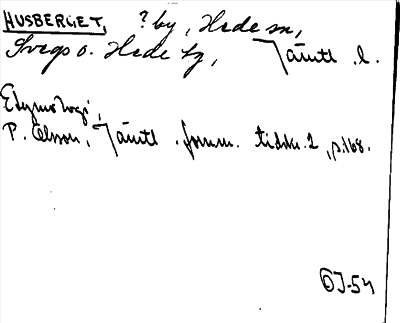 HUSBERGET, ? by, Hede sn,
Svegs o. Hede tg, Jämtl. l.
Etymologi,
P. Olsson, Jämtl. fornm. tidskr. 2, s. 168.
OJ-54